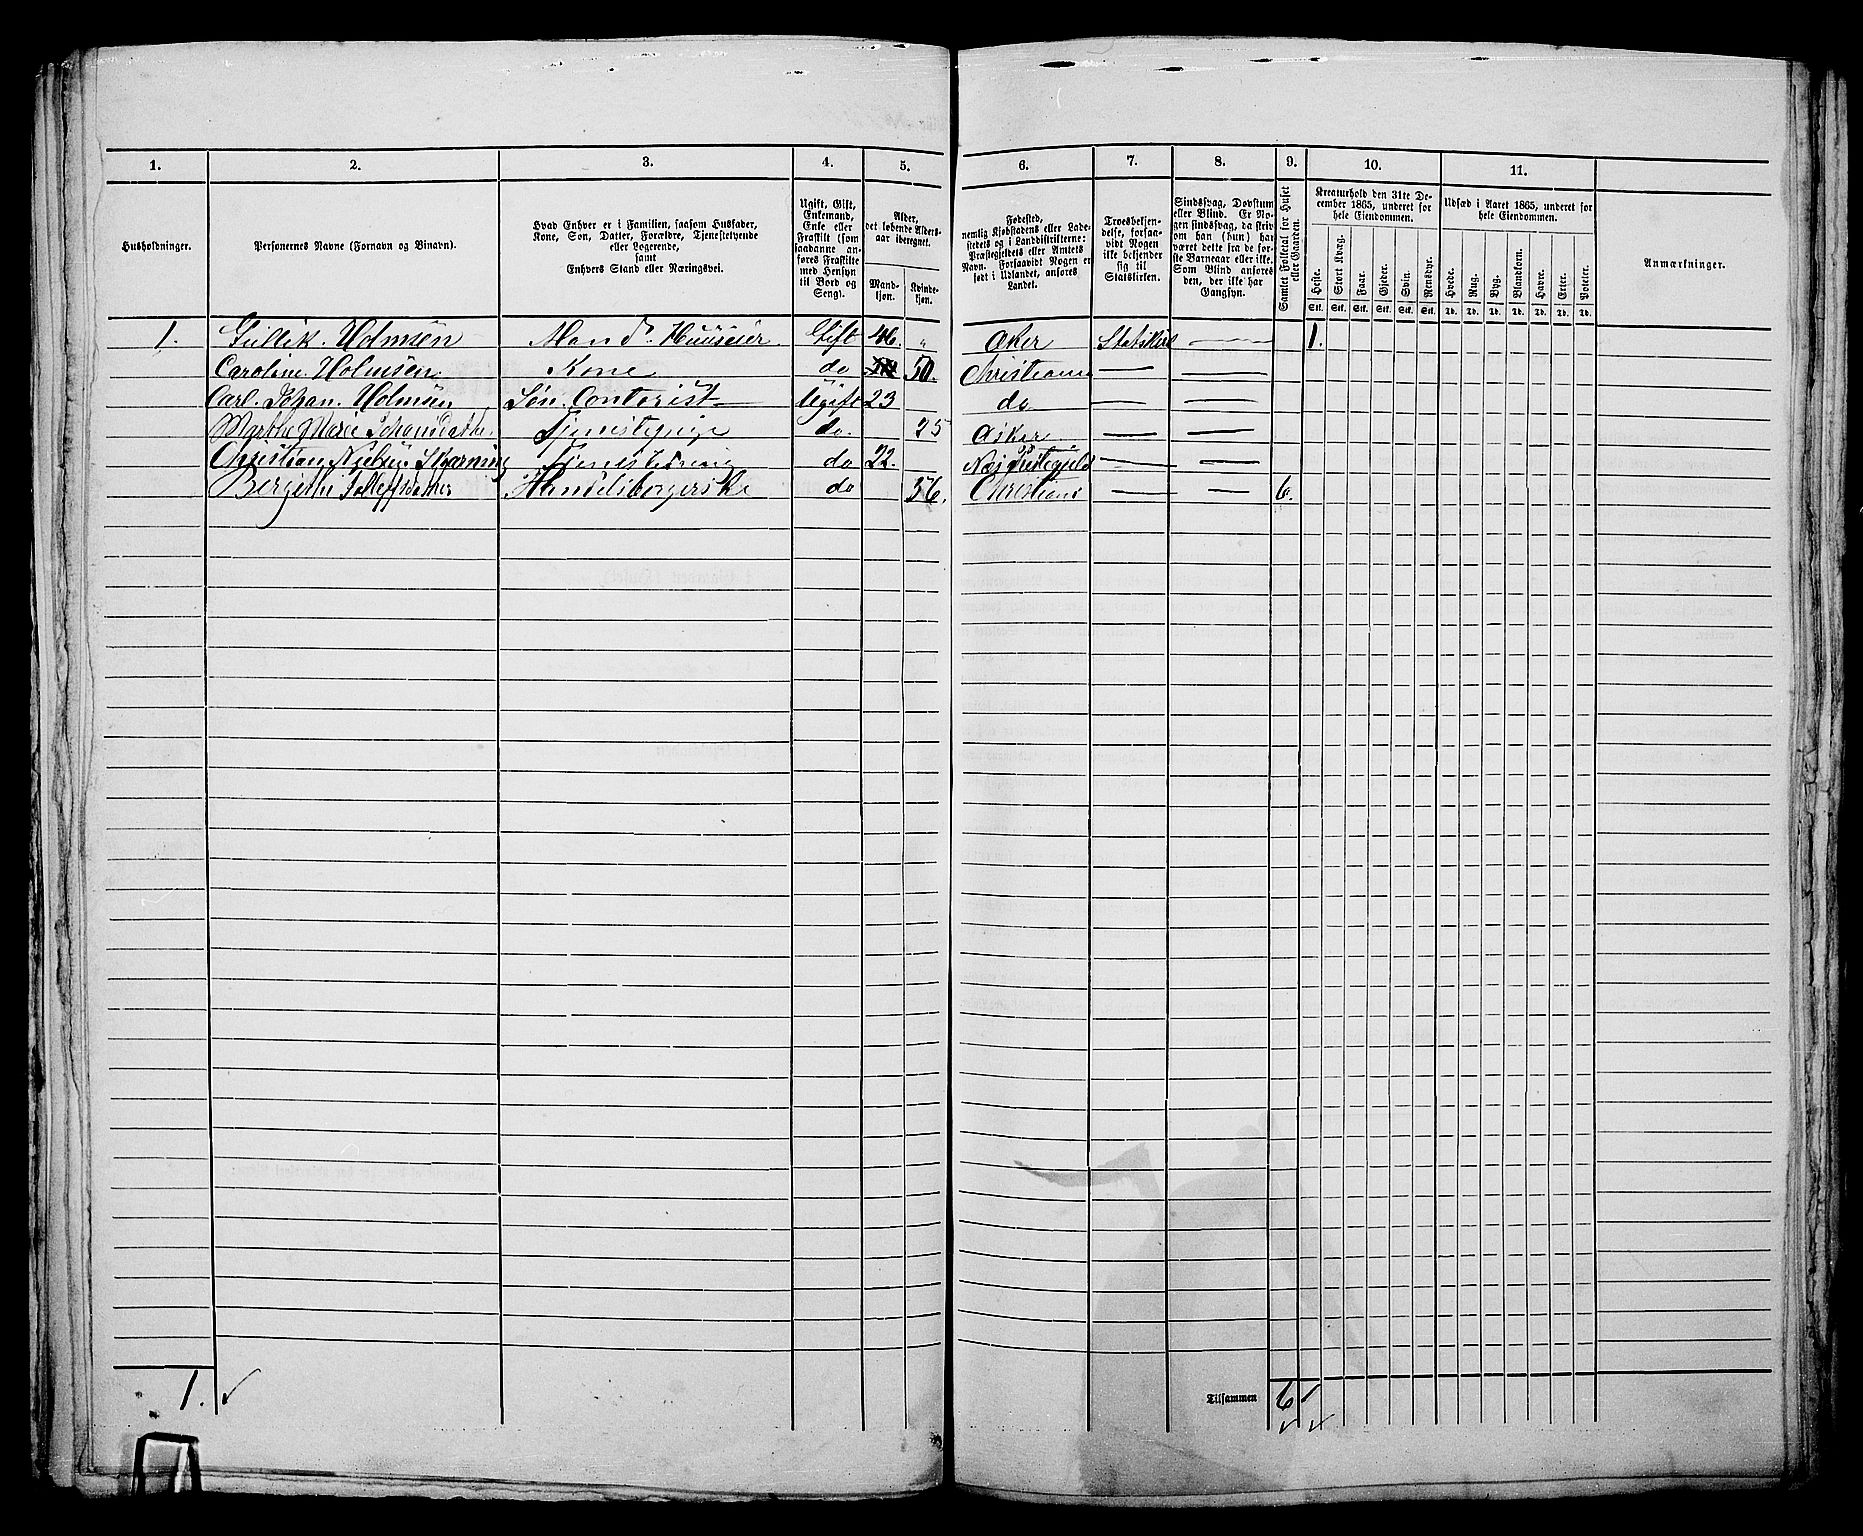 1. 2. 3. 4. 5. 6. 7. 8. 9. 10. 11.
Husholdninger.
Personernes Navne (Fornavn og Binavn).
Hvad Enhver er i Familien, saasom Husfader,
Kone, Søn, Datter, Forældre, Tjenestetyende
eller Logerende,
samt
Enhvers Stand eller Næringsvei.
Ugift, Gift,
Enkemand,
Enke eller
Fraskilt (som
saadanne an-
føres Fraskilte
med Hensyn
til Bord og
Seng).
Alder,
det løbende Alders-
aar iberegnet.
Mand-
kjøn.
Kvinde-
kjøn.
Fødested,
nemlig Kjøbstadens eller Lade-
stedets og i Landdistrikterne:
Præstegjeldets eller Amtets
Navn. Forsaavidt Nogen er
født i Udlandet, anføres
Landet.
Troesbekjen-
delse, forsaa-
vidt Nogen
ikke bekjender
sig til
Statskirken.
Sindssvag, Døvstum
eller Blind. Er No-
gen sindssvag, da skriv
om han (hun) har
været dette fra de før-
ste Barneaar eller ikke.
Som Blind anføres
den, der ikke har
Gangsyn.
Samlet Folketal for Huset
eller Gaarden.
Kreaturhold den 31te De-
cember 1865, underet for
hele Eiendommen.
Heste. Stort Kvæg. Faar. Gjeder. Svin. Rensdyr.
Stk. Stk. Stk. Stk. Stk. Stk.
Udsæd i Aaret 1865, underet for
hele Eiendommen.
Hvede. Rug. Byg. Blandkorn. Havre. Erter. Poteter.
Td. Td. Td. Td. Td. Td. Td.
Anmærkninger.
1. Gullik. Holmsen Mand. Huuseier. Gift 46. " Aker Statskirk 1.
Caroline. Holmsen Kone do 50. Christiania
Carl. Johan. Holmsen Søn. Contorist Ugift 23 do
Marthe Marie Johansdatter Tjenestepige do. 25 Asker
Christian Nielsen Tjenestedreng do 22. Næs Prestegjeld
Bergithe Handelsborgerske do 36. Christiania 6.
1. ✓
Tilsammen 6 1
✓ ✓